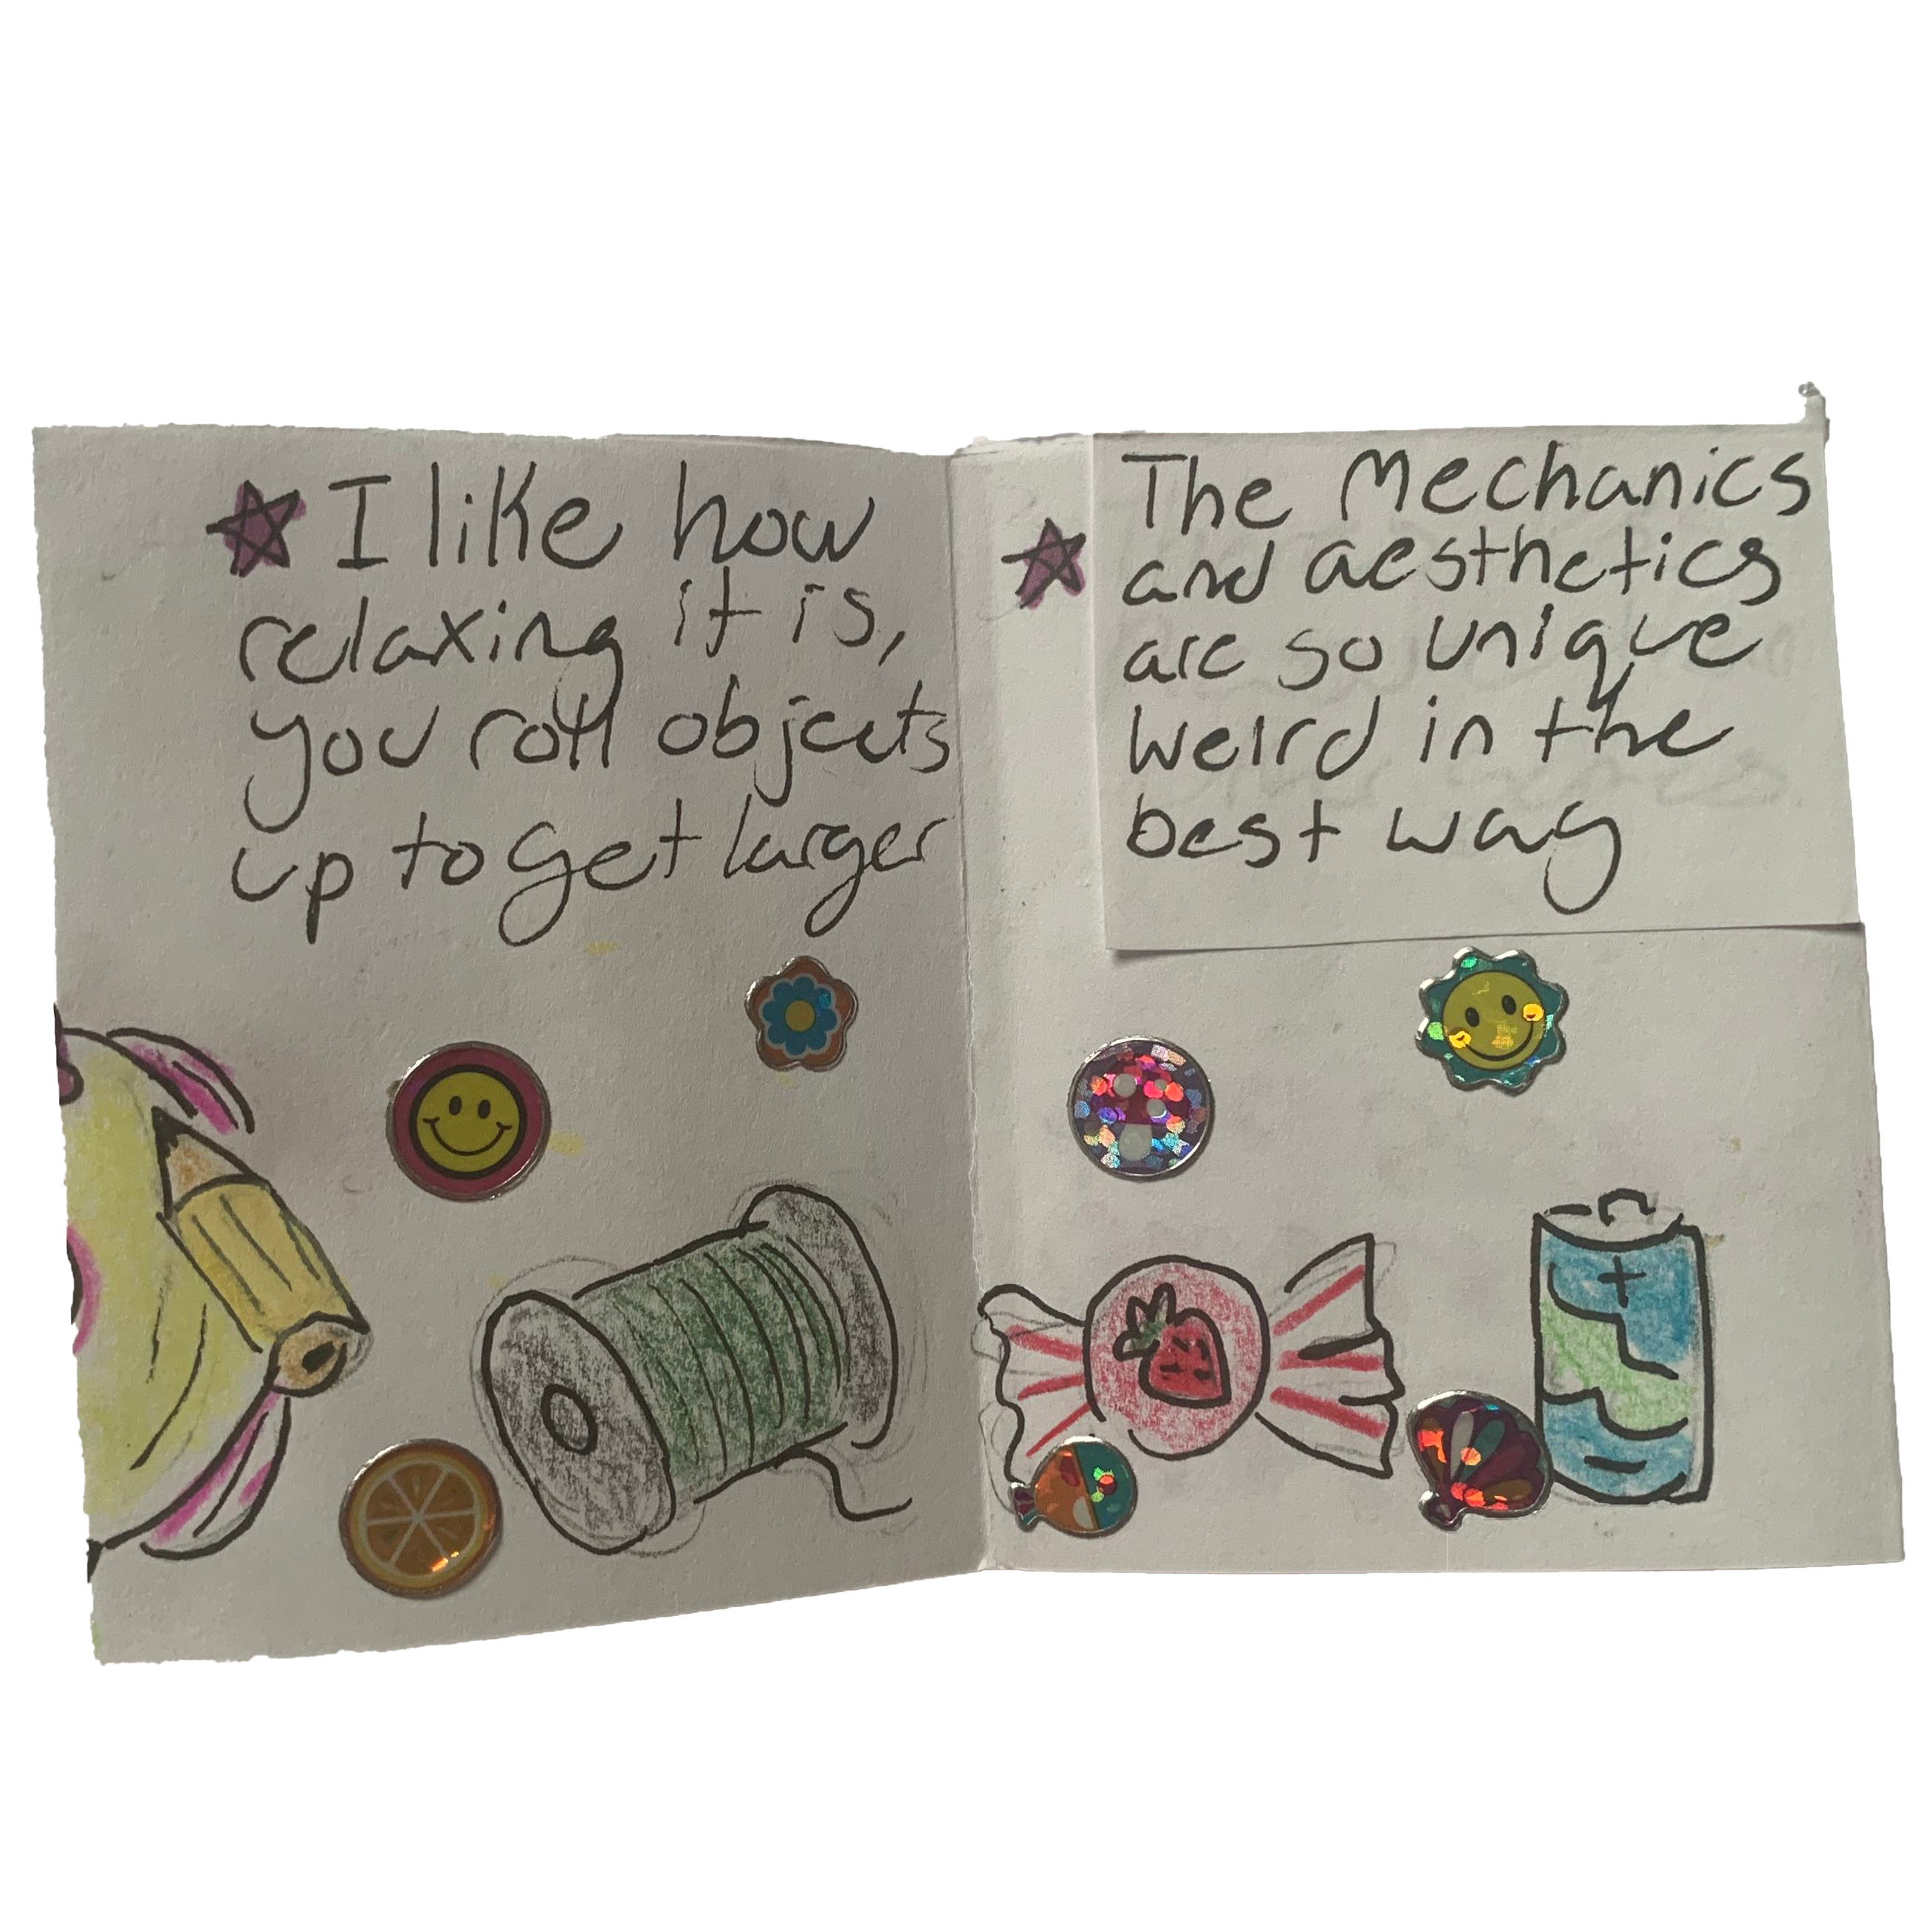 I like how
relaxing it is,
you roll objects
up to get larger
The Mechanics
and aesthetics
are so unique
weird in the
best way
+